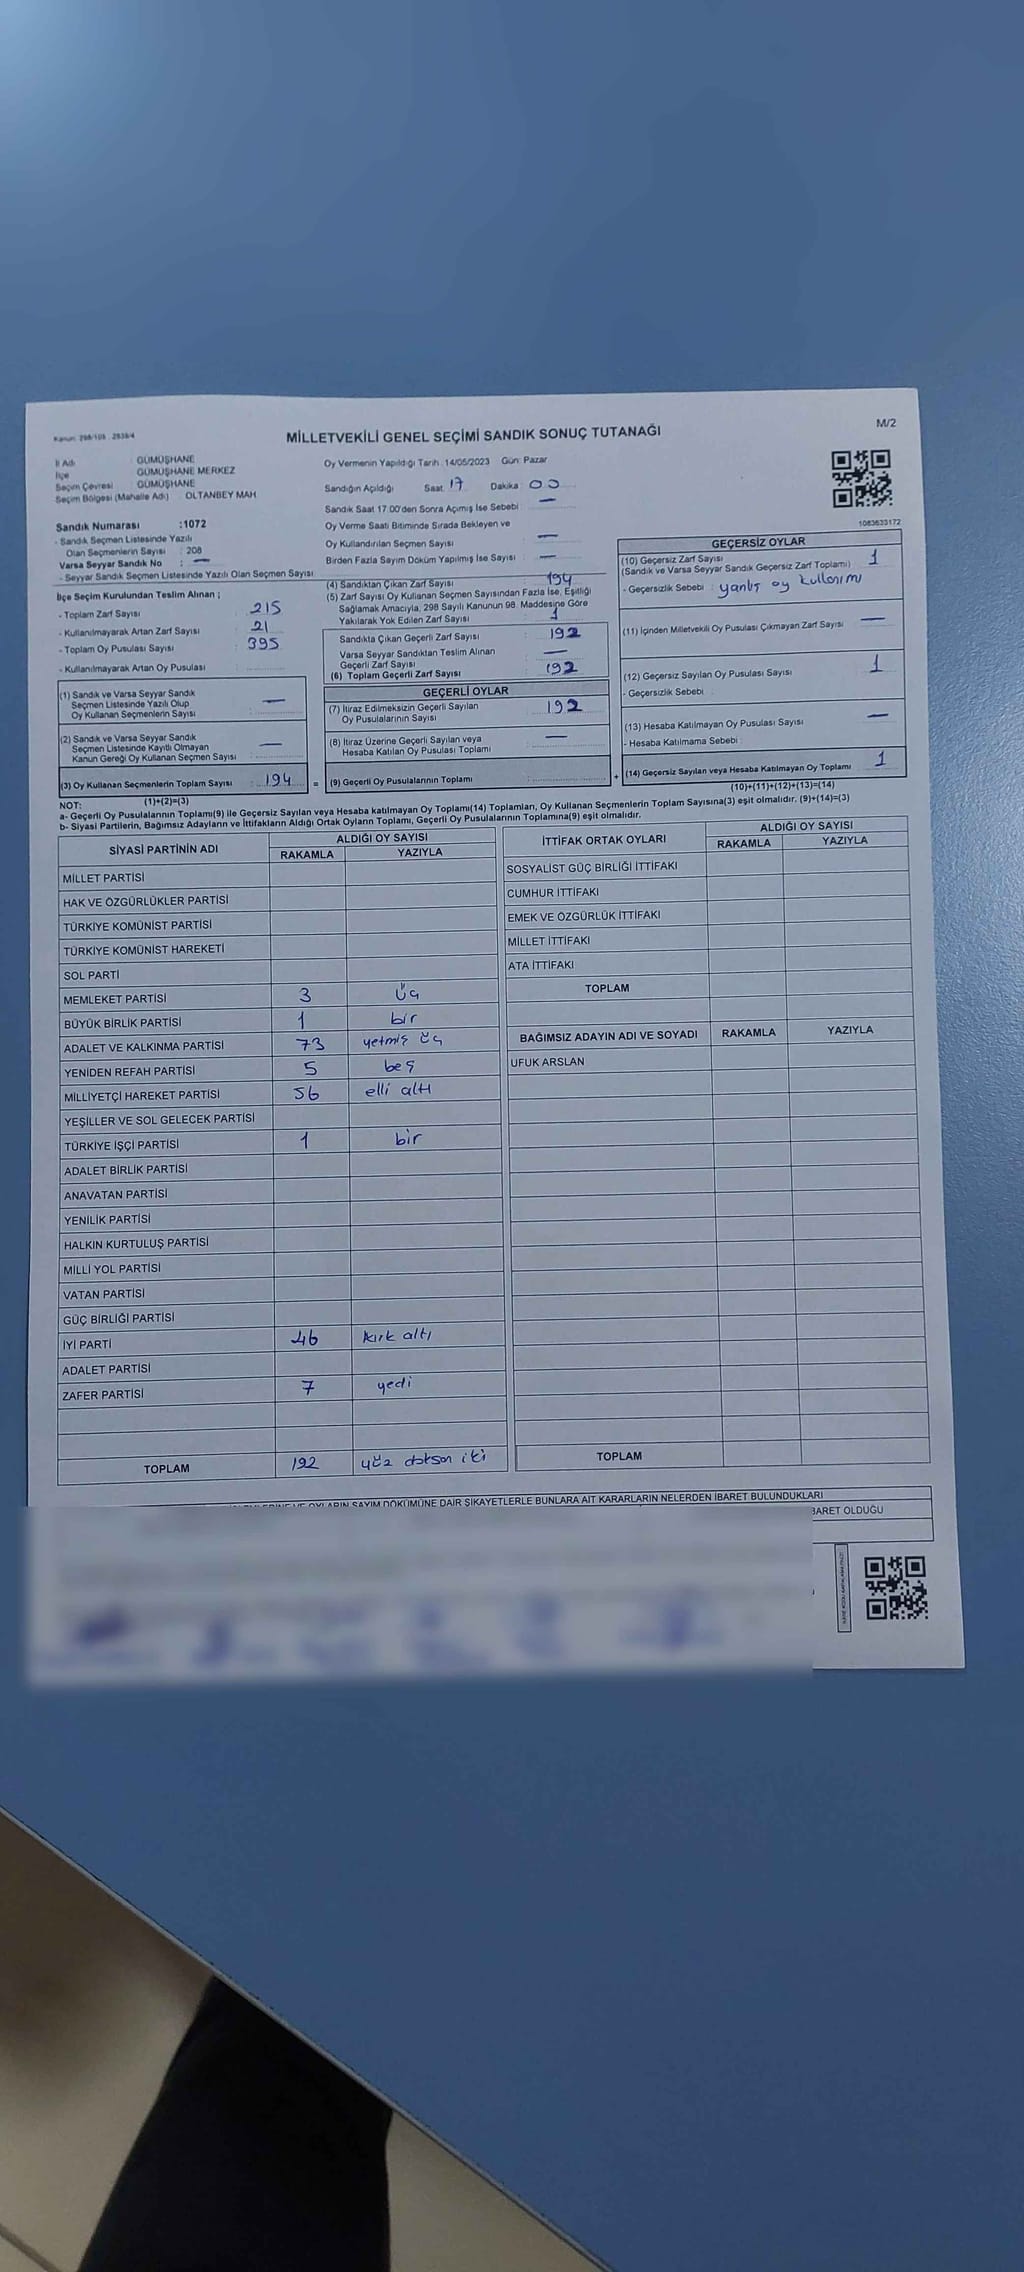 Kanun: 298/105 , 2839/4
M/2
MİLLETVEKİLİ GENEL SEÇİMİ SANDIK SONUÇ TUTANAĞI
İl Adı : GÜMÜŞHANE
İlçe : GÜMÜŞHANE MERKEZ
Seçim Çevresi : GÜMÜŞHANE
Seçim Bölgesi (Mahalle Adı) OLTANBEY MAH
Sandık Numarası :1072
- Sandık Seçmen Listesinde Yazılı
Olan Seçmenlerin Sayısı : 208
Varsa Seyyar Sandık No : —
- Seyyar Sandık Seçmen Listesinde Yazılı Olan Seçmen Sayısı
İlçe Seçim Kurulundan Teslim Alınan ;
- Toplam Zarf Sayısı : 215
- Kullanılmayarak Artan Zarf Sayısı : 21
- Toplam Oy Pusulası Sayısı : 395
- Kullanılmayarak Artan Oy Pusulası :
(1) Sandık ve Varsa Seyyar Sandık
Seçmen Listesinde Yazılı Olup
Oy Kullanan Seçmenlerin Sayısı : —
(2) Sandık ve Varsa Seyyar Sandık
Seçmen Listesinde Kayıtlı Olmayan
Kanun Gereği Oy Kullanan Seçmen Sayısı : —
(3) Oy Kullanan Seçmenlerin Toplam Sayısı : 194 =
(1)+(2)=(3)
Oy Vermenin Yapıldığı Tarih :14/05/2023 Gün: Pazar
Sandığın Açıldığı Saat: 17 Dakika 00
Sandık Saat 17.00'den Sonra Açımış İse Sebebi : —
Oy Verme Saati Bitiminde Sırada Bekleyen ve
Oy Kullandırılan Seçmen Sayısı : —
Birden Fazla Sayım Döküm Yapılmış İse Sayısı : —
(4) Sandıktan Çıkan Zarf Sayısı : 194
(5) Zarf Sayısı Oy Kullanan Seçmen Sayısından Fazla İse, Eşitliği
Sağlamak Amacıyla, 298 Sayılı Kanunun 98. Maddesine Göre
Yakılarak Yok Edilen Zarf Sayısı : 1
Sandıkta Çıkan Geçerli Zarf Sayısı : 192
Varsa Seyyar Sandıktan Teslim Alınan
Geçerli Zarf Sayısı : —
(6) Toplam Geçerli Zarf Sayısı : 192
GEÇERLİ OYLAR
(7) İtiraz Edilmeksizin Geçerli Sayılan
Oy Pusulalarının Sayısı : 192
(8) İtiraz Üzerine Geçerli Sayılan veya
Hesaba Katılan Oy Pusulası Toplamı : —
(9) Geçerli Oy Pusulalarının Toplamı : +
1083633172
GEÇERSİZ OYLAR
(10) Geçersiz Zarf Sayısı
(Sandık ve Varsa Seyyar Sandık Geçersiz Zarf Toplamı) 1
- Geçersizlik Sebebi : yanlış oy kullanımı
(11) İçinden Milletvekili Oy Pusulası Çıkmayan Zarf Sayısı —
(12) Geçersiz Sayılan Oy Pusulası Sayısı 1
- Geçersizlik Sebebi :
(13) Hesaba Katılmayan Oy Pusulası Sayısı —
- Hesaba Katılmama Sebebi :
(14) Geçersiz Sayılan veya Hesaba Katılmayan Oy Toplamı 1
(10)+(11)+(12)+(13)=(14)
NOT:
a- Geçerli Oy Pusulalarının Toplamı(9) ile Geçersiz Sayılan veya Hesaba katılmayan Oy Toplamı(14) Toplamları, Oy Kullanan Seçmenlerin Toplam Sayısına(3) eşit olmalıdır. (9)+(14)=(3)
b- Siyasi Partilerin, Bağımsız Adayların ve İttifakların Aldığı Ortak Oyların Toplamı, Geçerli Oy Pusulalarının Toplamına(9) eşit olmalıdır.
SİYASİ PARTİNİN ADI ALDIĞI OY SAYISI
RAKAMLA YAZIYLA
MİLLET PARTİSİ
HAK VE ÖZGÜRLÜKLER PARTİSİ
TÜRKİYE KOMÜNİST PARTİSİ
TÜRKİYE KOMÜNİST HAREKETİ
SOL PARTİ
MEMLEKET PARTİSİ 3 üç
BÜYÜK BİRLİK PARTİSİ 1 bir
ADALET VE KALKINMA PARTİSİ 73 yetmiş üç
YENİDEN REFAH PARTİSİ 5 beş
MİLLİYETÇİ HAREKET PARTİSİ 56 elli altı
YEŞİLLER VE SOL GELECEK PARTİSİ
TÜRKİYE İŞÇİ PARTİSİ 1 bir
ADALET BİRLİK PARTİSİ
ANAVATAN PARTİSİ
YENİLİK PARTİSİ
HALKIN KURTULUŞ PARTİSİ
MİLLİ YOL PARTİSİ
VATAN PARTİSİ
GÜÇ BİRLİĞİ PARTİSİ
İYİ PARTİ 46 kırk altı
ADALET PARTİSİ
ZAFER PARTİSİ 7 yedi
TOPLAM 192 yüz doksan iki
İTTİFAK ORTAK OYLARI ALDIĞI OY SAYISI
RAKAMLA YAZIYLA
SOSYALİST GÜÇ BİRLİĞİ İTTİFAKI
CUMHUR İTTİFAKI
EMEK VE ÖZGÜRLÜK İTTİFAKI
MİLLET İTTİFAKI
ATA İTTİFAKI
TOPLAM
BAĞIMSIZ ADAYIN ADI VE SOYADI RAKAMLA YAZIYLA
UFUK ARSLAN
TOPLAM
VE OYLARIN SAYIM DÖKÜMÜNE DAİR ŞİKAYETLERLE BUNLARA AİT KARARLARIN NELERDEN İBARET BULUNDUKLARI
BARET OLDUĞU